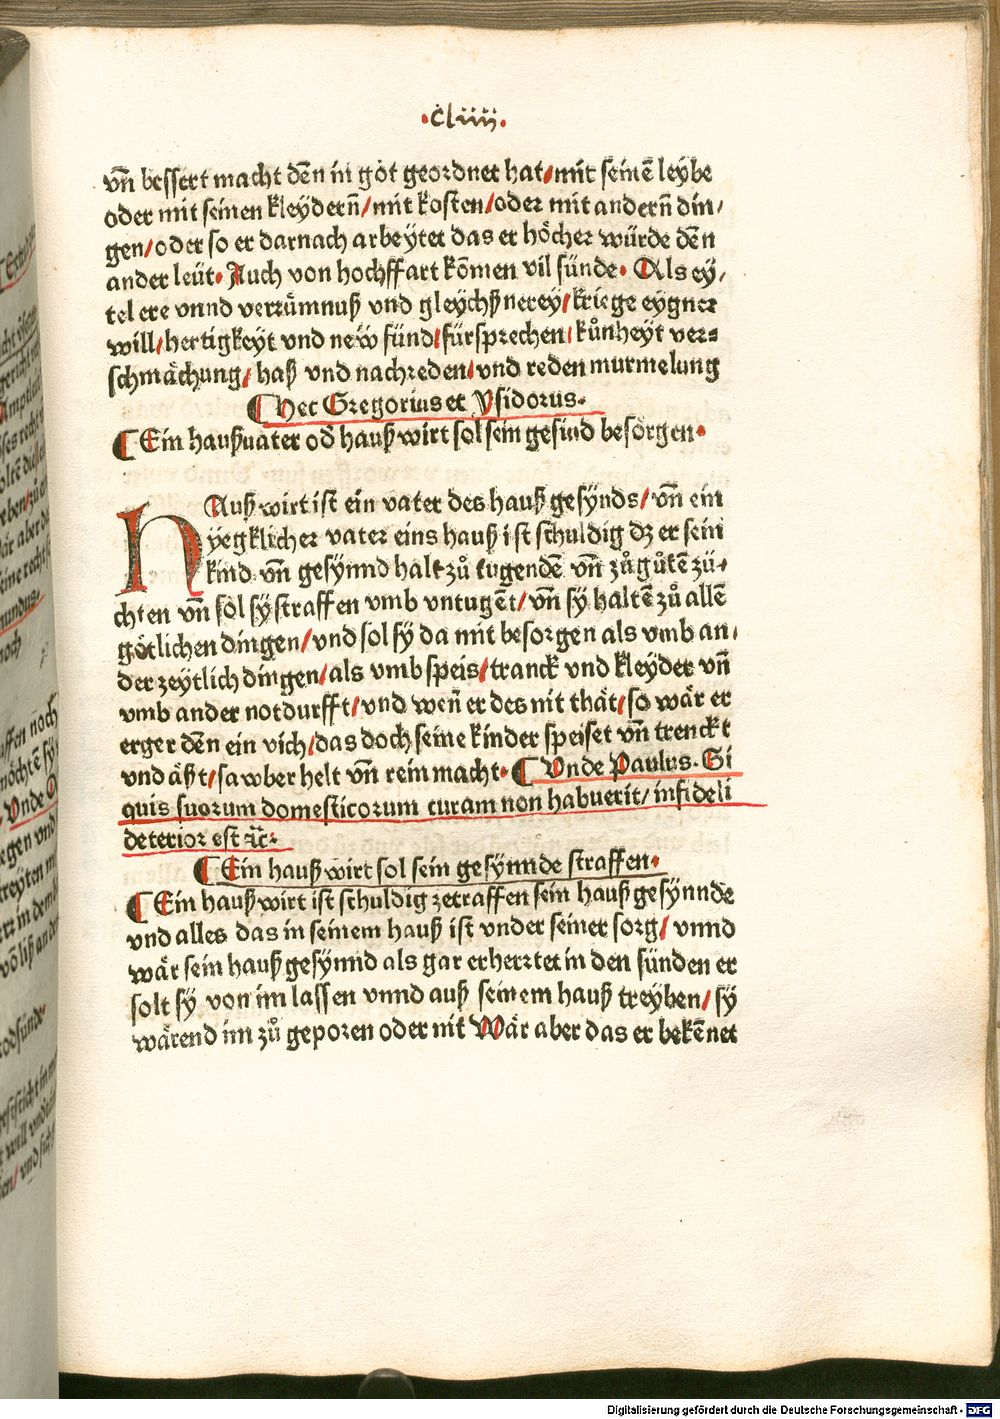 ·cliiij·
vn̄ bessert macht dēn in got geordnet hat/mit seinē leybe
oder mit seinen kleydern̄/mit kosten/oder mit andern̄ din/
gen/oder so er darnach arbeytet das er höcher würde dēn
ander leüt· Auch von hochffart kōmen vil sünde· Als ey/
tel ere vnnd verzümnuß vnd gleychßnerey/kriege eygner
will/hertigkeyt vnd neẅ fünd/fürsprechen/kůnheyt ver⸗
schmächung/ haß vnd nachreden/vnd reden murmelung
¶ Hec Gregorius et Ysidorus.
¶ Ein haußuater od̄ hauß wirt sol sein gesind besorgen·
HAuß wirt ist ein vater des hauß gesÿnds/ vn̄ ein
yegklicher vater eins hauß ist schuldig dz er sein
kind vn̄ gesÿnnd halt zů tugendē vn̄ zů gůtē zü/
chten vn̄ sol sÿ straffen vmb vntugēt/ vn̄ sÿ haltē zů allē
götlichen dingen/vnd sol sÿ da mit besorgen als vmb an/
der zeytlich dingen/als vmb speis/tranck vnd kleyder vn̄
vmb ander notdurfft/vnd wen̄ er des nit thät/so wär er
erger dēn ein vich/das doch seine kinder speiset vn̄ trenckt
vnd äßt/sawber helt vn̄ rein macht·¶ Vnde Paulus. Si
quis suorum domesticorum curam non habuerit/ infideli
deterior est ꝛc̄.
¶ Ein hauß wirt sol sein gesÿnnde straffen·
¶ Ein hauß wirt ist schuldig zetraffen sein hauß gesÿnnde
vnd alles das in seinem hauß ist vnder seiner sorg/ vnnd
wär sein hauß gesÿnnd als gar erhertet in den sünden er
solt sÿ von im lassen vnnd auß seinem hauß treyben/ sÿ
wärend im zů geporen oder nit Wär aber das er bekēnet
Digitalisierung gefördert durch die Deutsche Forschungsgemeinschaft - DFG